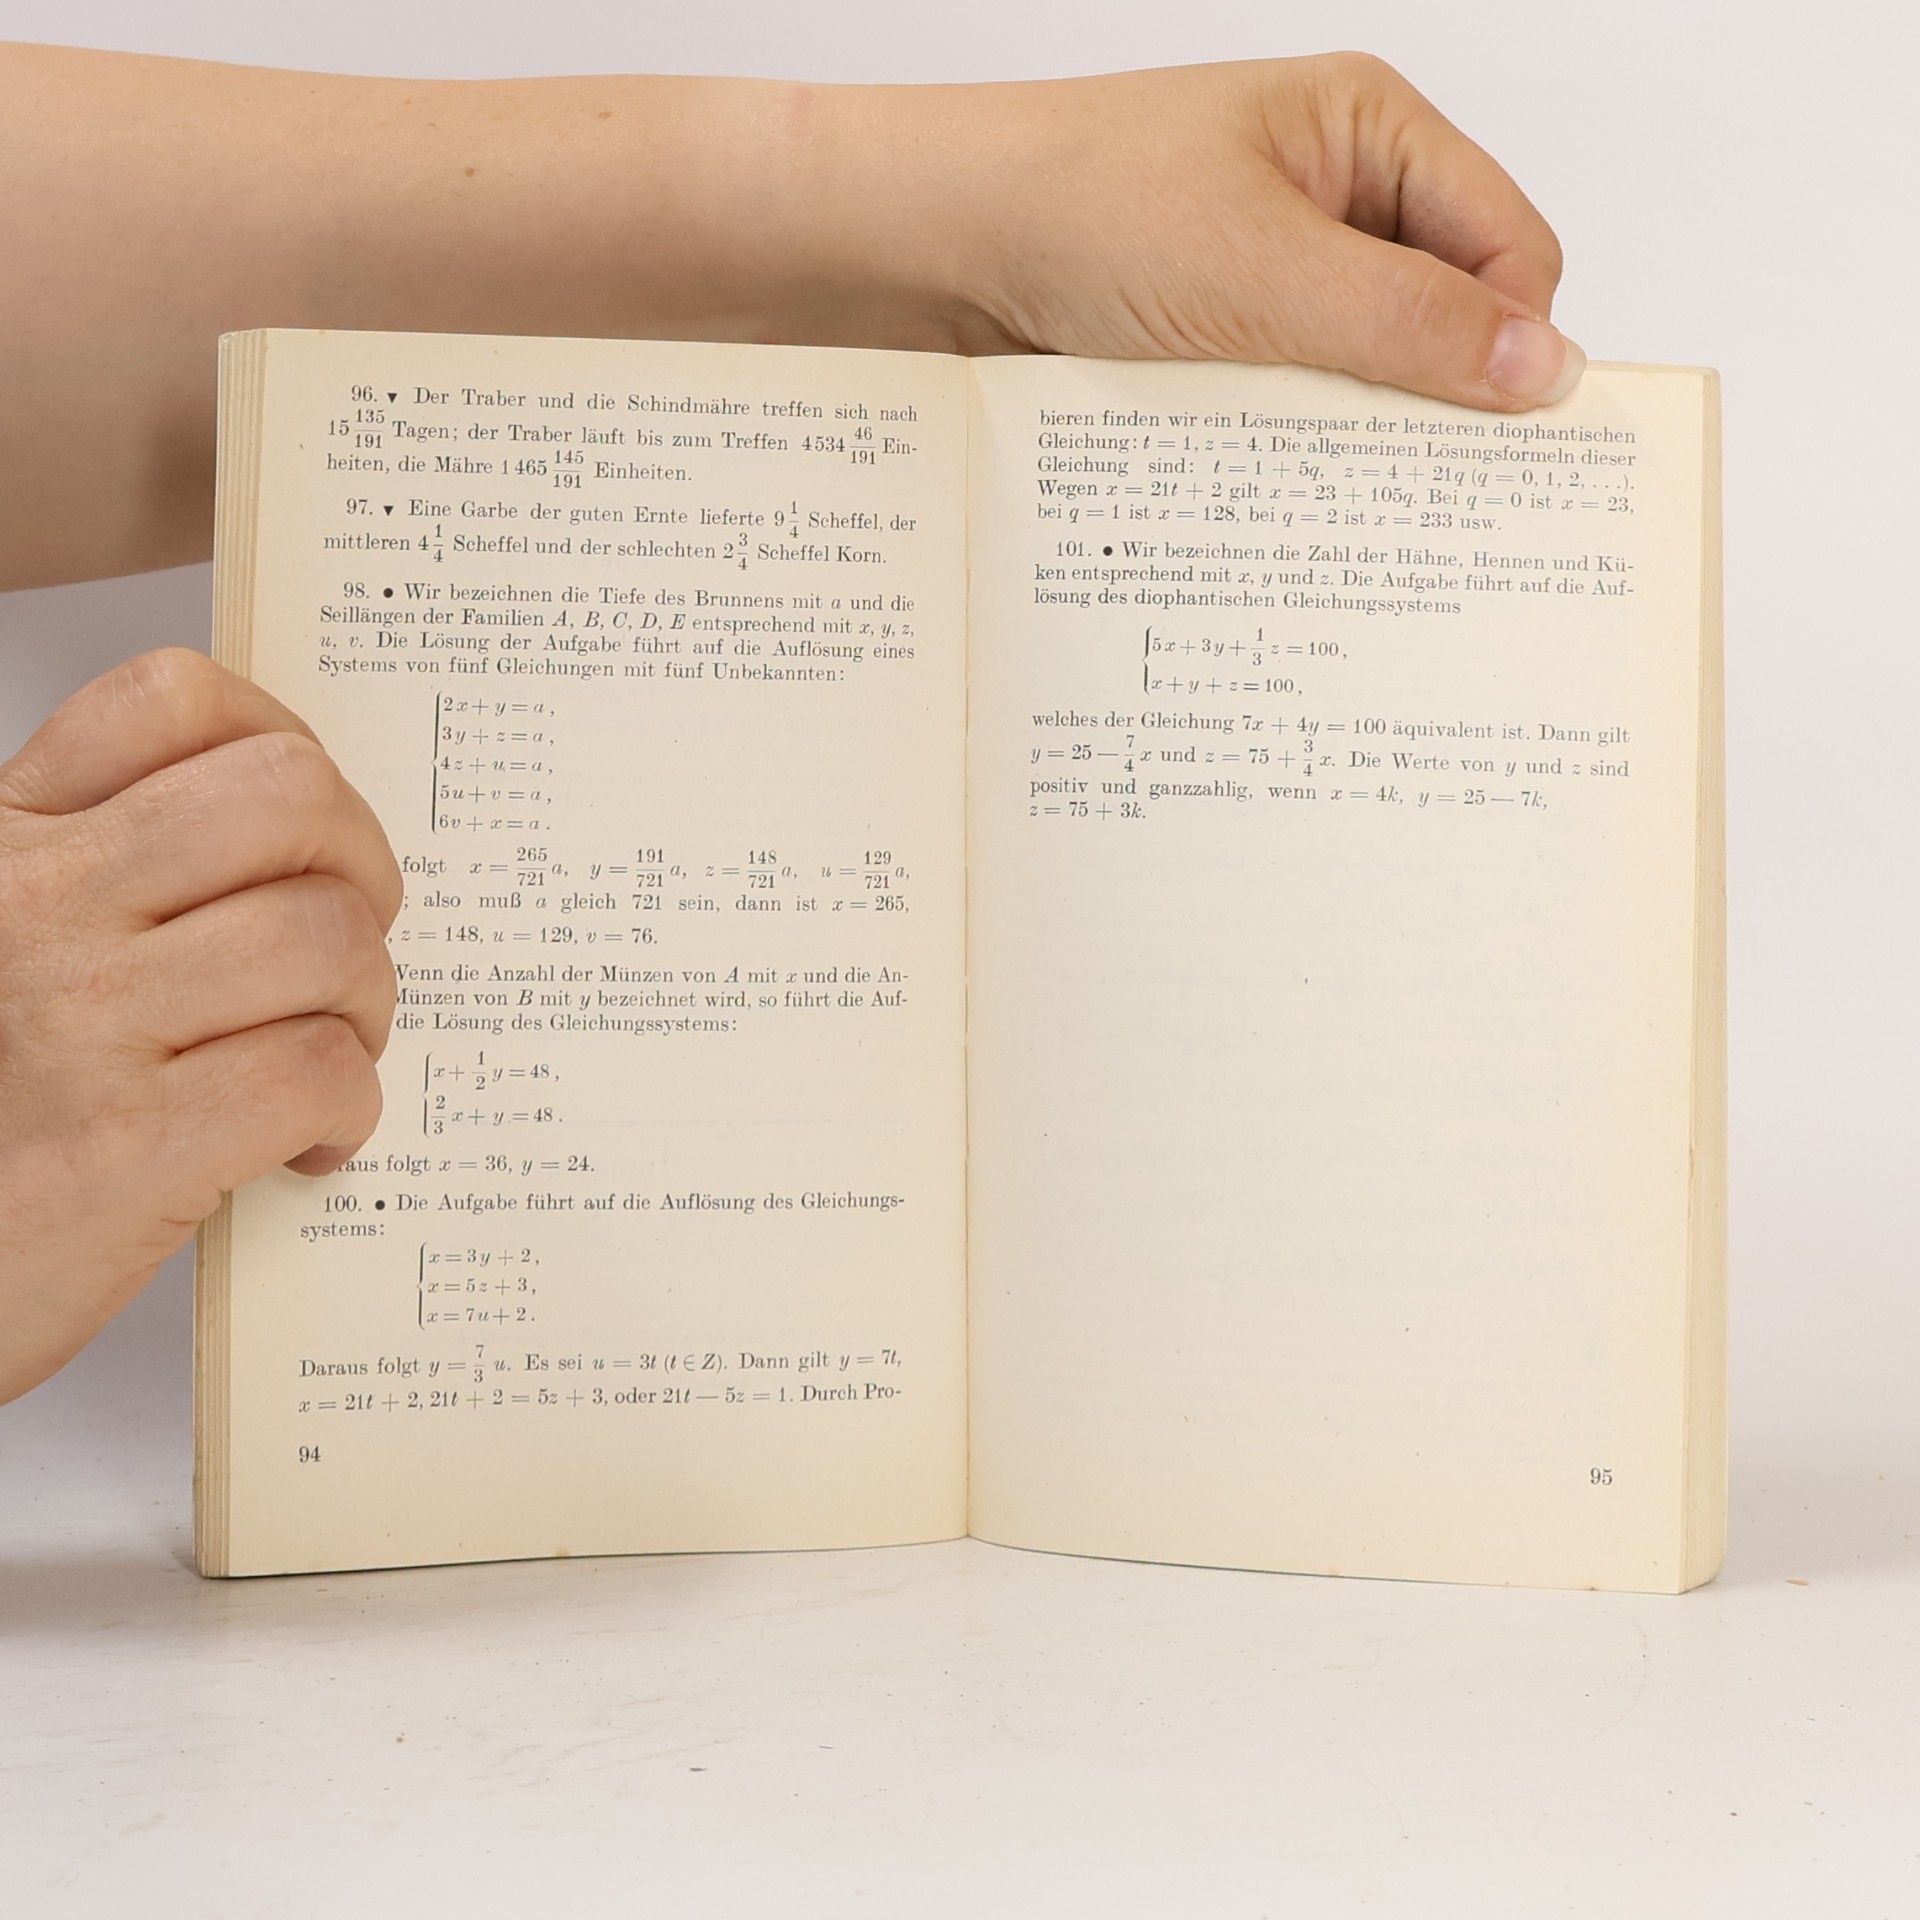 96. ▼ Der Traber und die Schindmähre treffen sich nach
15 135/191 Tagen; der Traber läuft bis zum Treffen 4534 46/191 Ein-
heiten, die Mähre 1465 145/191 Einheiten.
97. ▼ Eine Garbe der guten Ernte lieferte 9 1/4 Scheffel, der
mittleren 4 1/4 Scheffel und der schlechten 2 3/4 Scheffel Korn.
98. ● Wir bezeichnen die Tiefe des Brunnens mit a und die
Seillängen der Familien A, B, C, D, E entsprechend mit x, y, z,
u, v. Die Lösung der Aufgabe führt auf die Auflösung eines
Systems von fünf Gleichungen mit fünf Unbekannten:
2x + y = a,
3y + z = a,
4z + u = a,
5u + v = a,
6v + x = a.
folgt x = 265/721 a, y = 191/721 a, z = 148/721 a, u = 129/721 a,
; also muß a gleich 721 sein, dann ist x = 265,
, z = 148, u = 129, v = 76.
Wenn die Anzahl der Münzen von A mit x und die An-
Münzen von B mit y bezeichnet wird, so führt die Auf-
die Lösung des Gleichungssystems:
x + 1/2 y = 48,
2/3 x + y = 48.
aus folgt x = 36, y = 24.
100. ● Die Aufgabe führt auf die Auflösung des Gleichungs-
systems:
x = 3y + 2,
x = 5z + 3,
x = 7u + 2.
Daraus folgt y = 7/3 u. Es sei u = 3t (t ∈ Z). Dann gilt y = 7t,
x = 21t + 2, 21t + 2 = 5z + 3, oder 21t — 5z = 1. Durch Pro-
94
bieren finden wir ein Lösungspaar der letzteren diophantischen
Gleichung: t = 1, z = 4. Die allgemeinen Lösungsformeln dieser
Gleichung sind: t = 1 + 5q, z = 4 + 21q (q = 0, 1, 2, ...).
Wegen x = 21t + 2 gilt x = 23 + 105q. Bei q = 0 ist x = 23,
bei q = 1 ist x = 128, bei q = 2 ist x = 233 usw.
101. ● Wir bezeichnen die Zahl der Hähne, Hennen und Kü-
ken entsprechend mit x, y und z. Die Aufgabe führt auf die Auf-
lösung des diophantischen Gleichungssystems
5x + 3y + 1/3 z = 100,
x + y + z = 100,
welches der Gleichung 7x + 4y = 100 äquivalent ist. Dann gilt
y = 25 — 7/4 x und z = 75 + 3/4 x. Die Werte von y und z sind
positiv und ganzzahlig, wenn x = 4k, y = 25 — 7k,
z = 75 + 3k.
95